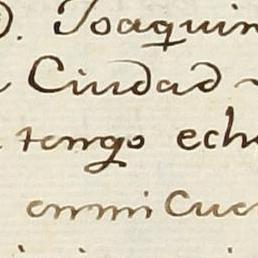 D. Joaquin
Ciudad
tengo echo
en mi Cue